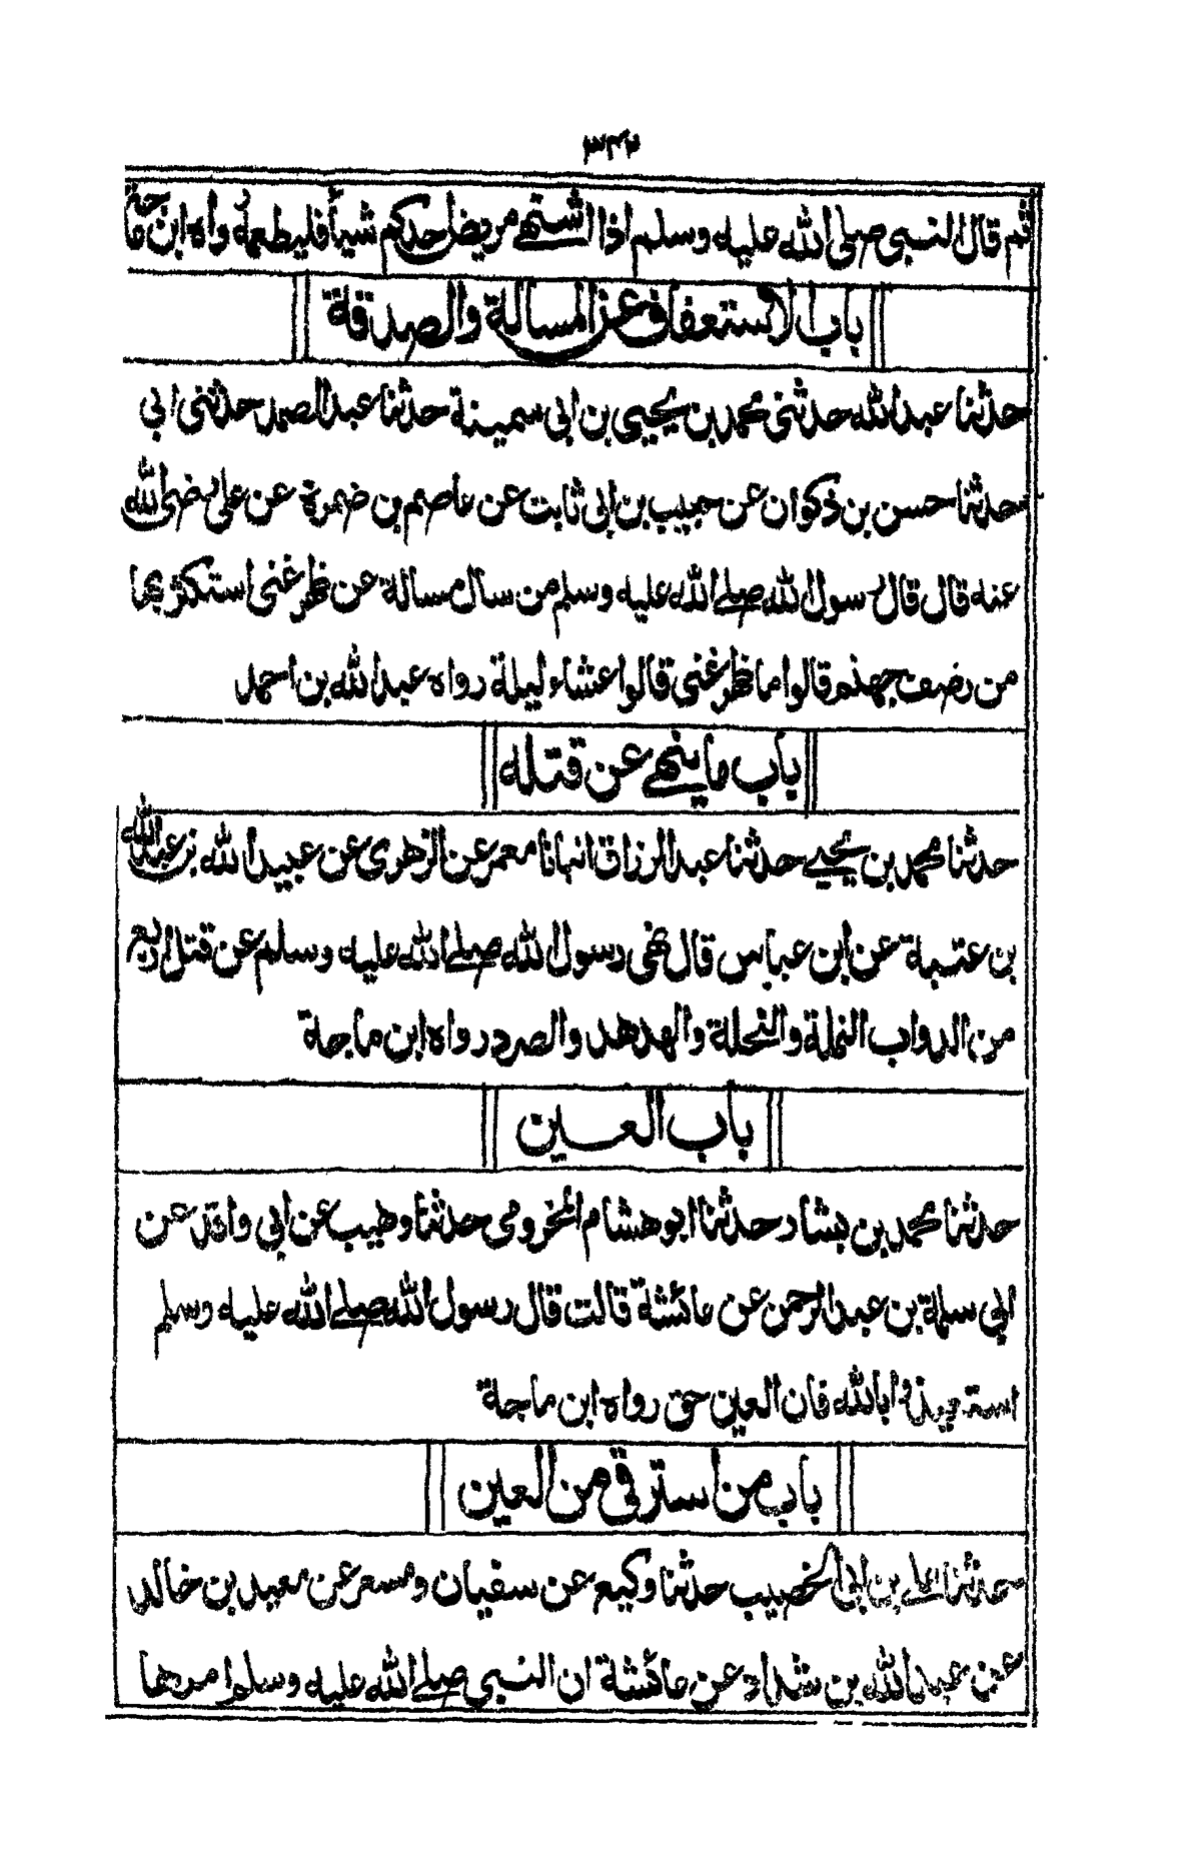 ثم قال النبي صلى الله عليه وسلم اذا اشتهے مريض احدكم شيأ فليطعمه رواه ابن ماجة
باب الاستعفاف عن المسالة والصدقة
حدثنا عبد الله حدثني محمد بن يحيى بن ابي سمينة حدثنا عبد الصمد حدثنى ابي
حدثنا حسن بن ذكوان عن حبيب بن ابي ثابت عن عاصم بن ضمرة عن على رضى الله
عنه قال قال رسول الله صلے الله عليه وسلم من سال مسالة عن ظهر غنى استكثر بها
من رضف جهنم قالوا ما ظهر غنى قالوا عشاء ليلة رواه عبد الله بن احمد
باب ما ينهے عن قتله
حدثنا محمد بن يحيے حدثنا عبد الرزاق انبانا معمر عن الزهرى عن عبيد الله بن عبد الله
بن عتبة عن ابن عباس قال نهى رسول الله صلے الله عليه وسلم عن قتل اربع
من الدواب النملة والنحلة والهدهد والصرد رواه ابن ماجة
باب العين
حدثنا محمد بن بشار حدثنا ابو هشام المخزومي حدثنا وهيب عن ابي واقد عن
ابي سلمة بن عبد الرحمن عن عائشة قالت قال رسول الله صلے الله عليه وسلم
استعيذوا بالله فان العين حق رواه ابن ماجة
باب من استرقي من العين
حدثنا علے بن ابي الخصيب حدثنا وكيع عن سفيان ومسعر عن معبد بن خالد
عن عبد الله بن شداد عن عائشة ان النبي صلے الله عليه وسلم امرها